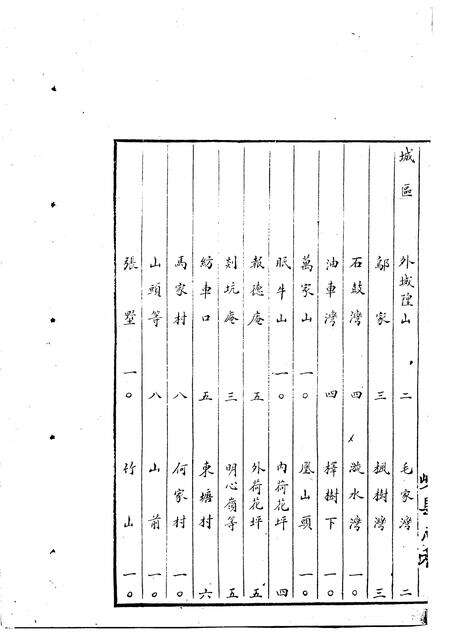 城區 外城隍山 二 毛家灣 二
鄔家 三 楓樹灣 三
石鼓灣 四 漩水灣 一〇
油車灣 四 樟樹下 一〇
萬家山 一〇 屋山頭 一〇
眠牛山 一〇 內荷花坪 四
報德庵 五 外荷花坪 五
剡坑庵 三 明心嶺等 五
紡車口 五 東塘村 六
馬家村 八 何家村 一〇
山頭等 八 山前 一〇
張墅 一〇 竹山 一〇